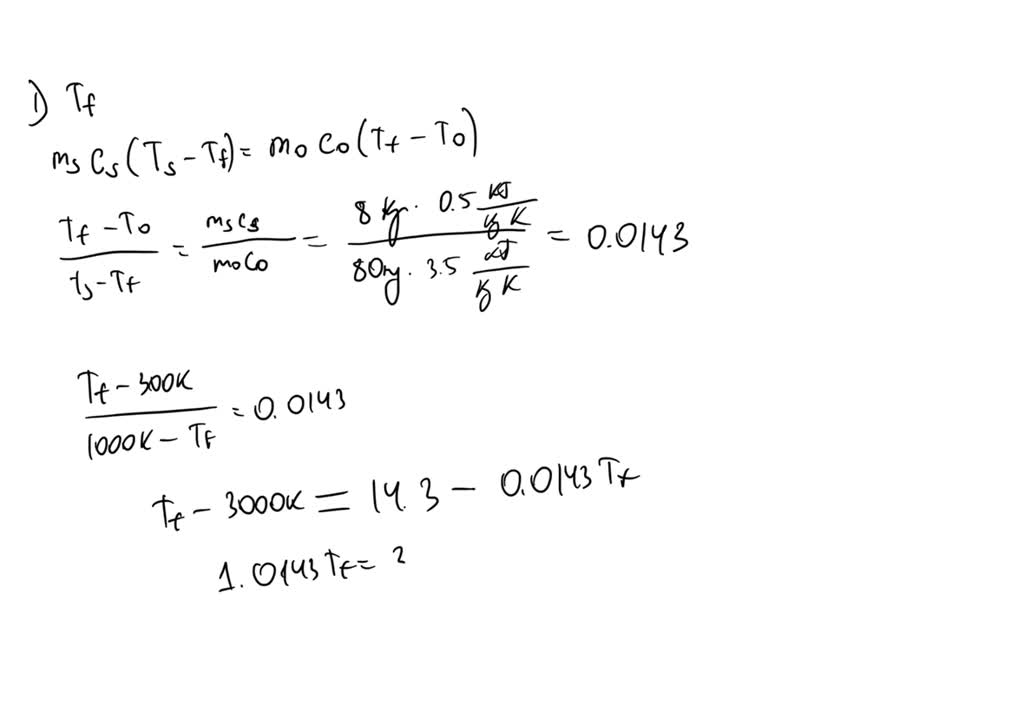 1) Tf
ms Cs (Ts - Tf) = mo Co (Tf - To)
Tf - To / Ts - Tf = ms Cs / mo Co = 8 kg · 0.5 kJ/kg K / 80 kg · 3.5 kJ/kg K = 0.0143
Tf - 300K / 1000K - Tf = 0.0143
Tf - 3000K = 14.3 - 0.0143 Tf
1.0143 Tf =